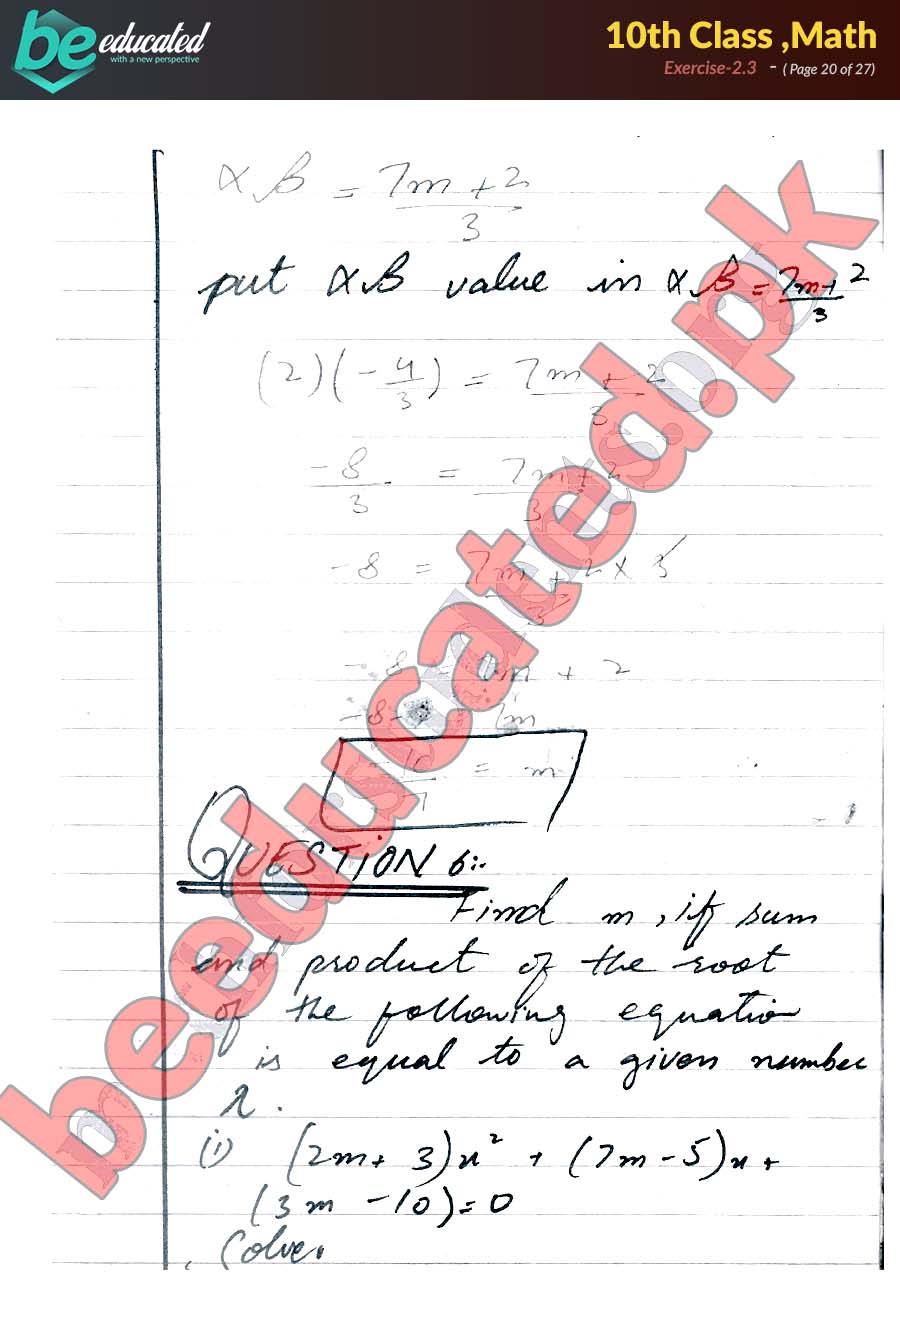 be educated
with a new perspective
10th Class ,Math
Exercise-2.3 - ( Page 20 of 27)
αβ = 7m+2/3
put αβ value in αβ = 7m+2/3
(2)(-4/3) = 7m+2/3
-8/3 = 7m+2/3
-8 = 7m+2/3 × 3
-8 = 7m + 2
-8- = 7m
-10/7 = m
QUESTION 6:-
Find m, if sum
and product of the root
of the following equation
is equal to a given number
λ.
(i) (2m+ 3)x² + (7m-5)x +
(3m -10)=0
Solve.
beeducated.pk